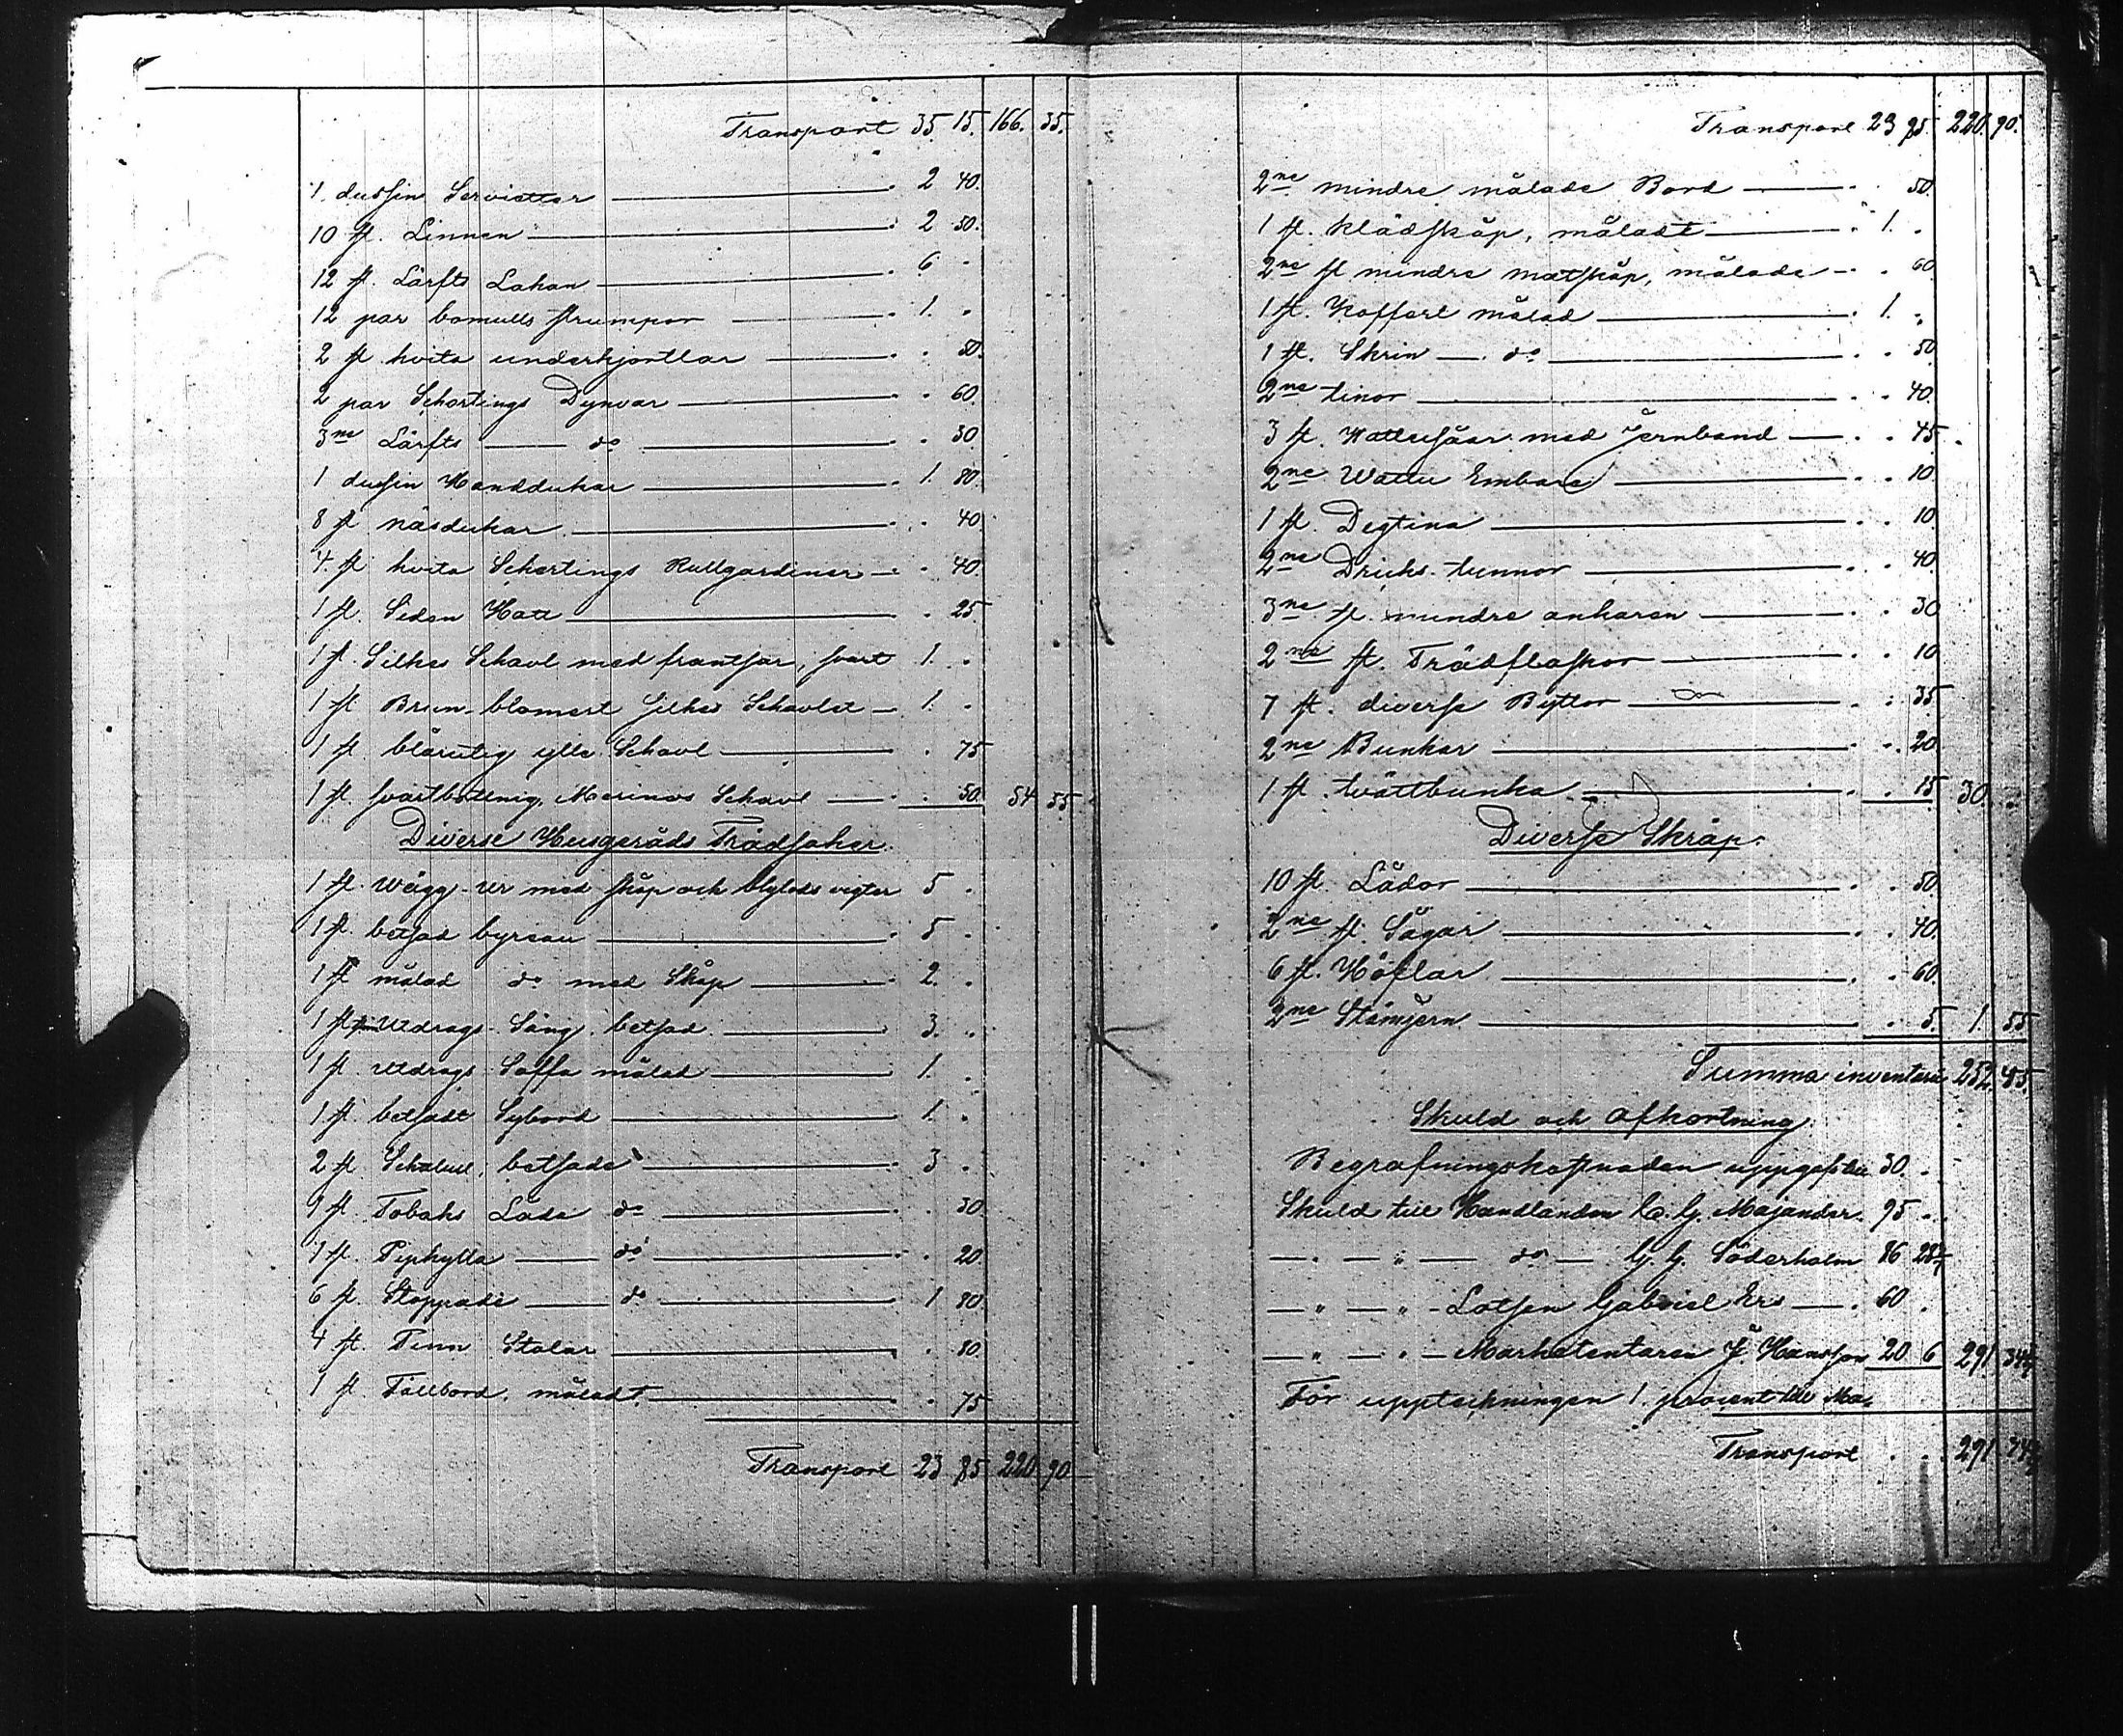 Transport 35 15. 166. 35.
1. dussin Servietter . 2 40.
10 st. Linnen . 2 50.
12 st. Lärfts Lakan . 6 .
12 par bomulls strumpor . 1. .
2 st hvita underkjortlar . . 50.
2 par Schertings Dynvar . . 60.
3ne Lärfts — do . . 30
1 dussin Handdukar . 1. 80.
8 st näsdukar . . 40.
4 st hvita Schertings Rullgardiner . 40.
1 st. Siden Hatt . 25
1 st. Silkes Schavl med frantsar, svart 1. .
1 st Brun-blomert Silkes Schavlet 1. .
1 st blårutig ylle Schavl . 75
1 st. svartbottnig, Merinos Schavl . 50. 54 55
Diverse Husgeråds Trädsaker.
1 st. Wägg-Ur med skåp och blylods vigter 5 .
1 st. betsad byreau . 5 .
1 st målad do med Skåp . 2. .
1 st Utdrags-Säng betsad . 3. .
1 st. Utdrags Soffa målad . 1. .
1 st. betsadt Sybord . 1. .
2 st. betsade . 3 .
st. Tobaks Låda do . . 30.
1 st. Piphylla — do . . 20
6 st. Stoppade — do . 1 80
4 st. Stolar . . 80.
1 st. Fällbord, måladt. . . 75
Transport 23 85 220 90
Transport 23 85. 220. 90.
2ne mindre målade Bord . 50.
1 st. klädskåp, måladt . 1. .
2ne st mindre matskåp, målade . . 60
1 st. Koffert målad . 1. .
1 st. Skrin — do . . 50
2ne tinor . . 40.
3 st. Wattusåar med Jernband . . 45
2ne Wattu Embare . . 10.
1 st. Degtina . . 10.
2ne Dricks-tunnor . . 40
3ne st. mindre ankaren . . 30
2ne st. Trädflaskor . . 10
7 st. diverse Byttor . . 35
2ne Bunkar . . 20
1 st. tvättbunka . . 15 30. .
Diverse Skräp.
10 st. Lådor . . 50
2ne st. Sågar . . 40.
6 st. Höflar . . 60.
2ne Stämjern . 5. 1. 55
Summa inventarii 252 45
Skuld och afkortning.
Begrafningskostnaden uppgifves till 30. .
Skuld till Handlanden C. G. Majander. 95 . .
— . — " — do — G. G. Söderholm 86 28
— " — " — Lotsen Gabriel Ers . 60 .
— " — " — Marketentaren J. Hansson 20 6 291 34
För uppteckningen 1. procent till
Transport . . . 291 34